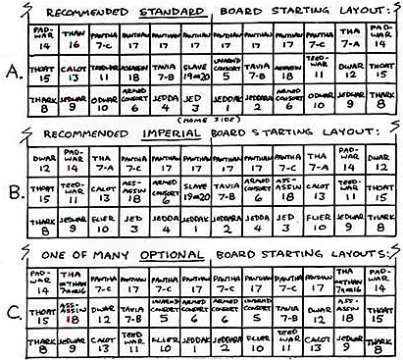 RECOMMENDED STANDARD BOARD STARTING LAYOUT:
PAD-WAR 14 THAN 16 PANTHA 7-C PANTHAN 17 PANTHAN 17 PANTHAN 17 PANTHAN 17 PANTHAN 17 PANTHAN 17 PANTHA 7-C THA 7-A PAD-WAR 14
A. THOAT 15 CALOT 13 TEEDWAR 11 ASSASSIN 18 TAVIA 7-B SLAVE 19 or 20 UNARMED CONSORT 5 TAVIA 7-B ASSASSIN 18 TEED-WAR 11 DWAR 12 THOAT 15
THARK 8 JEDWAR 9 ODWAR 10 ARMED CONSORT 6 JEDDA 4 JED 3 JEDDAK 1 JEDDARA 2 ARMED CONSORT 6 ODWAR 10 JEDWAR 9 THARK 8
(HOME SIDE)
RECOMMENDED IMPERIAL BOARD STARTING LAYOUT:
DWAR 12 PAD-WAR 14 THA 7-A PANTHA 7-C PANTHAN 17 PANTHAN 17 PANTHAN 17 PANTHAN 17 PANTHA 7-C THA 7-A PAD-WAR 14 DWAR 12
B. THOAT 15 TEED-WAR 11 CALOT 13 ASS-ASSIN 18 ARMED CONSORT 6 SLAVE 19 or 20 TAVIA 7-B ARMED CONSORT 6 ASS-ASSIN 18 CALOT 13 TEED-WAR 11 THOAT 15
THARK 8 JEDWAR 9 FLIER 10 JED 3 JEDDA 4 JEDDAK 1 JEDDARA 2 JEDDA 4 JED 3 FLIER 10 JEDWAR 9 THARK 8
ONE OF MANY OPTIONAL BOARD STARTING LAYOUTS:
PAD-WAR 14 THA 7-A or 16 PANTHA 7-C PANTHAN 17 PANTHA 7-C PANTHAN 17 PANTHAN 17 PANTHA 7-C PANTHAN 17 PANTHA 7-C THA 7-A or 16 PAD-WAR 14
C. THOAT 15 ASS-ASSIN 18 DWAR 12 TAVIA 7-B UNARMED CONSORT 5 ARMED CONSORT 6 ARMED CONSORT 6 UNARMED CONSORT 5 TAVIA 7-B DWAR 12 ASS-ASSIN 18 THOAT 15
THARK 8 JEDWAR 9 CALOT 13 TEED WAR 11 FLIER 10 JEDDAK 1 JEDDARA 2 FLIER 10 TEED WAR 11 CALOT 13 JEDWAR 9 THARK 8